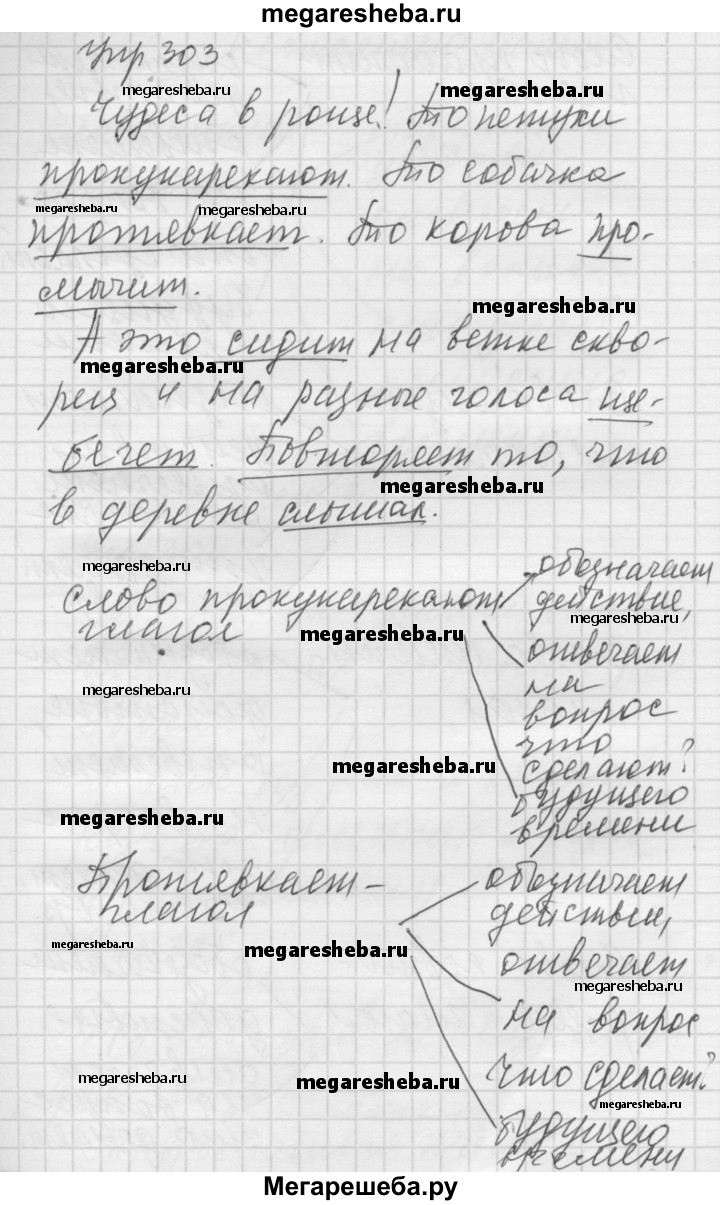 megaresheba.ru
Упр 303
megaresheba.ru megaresheba.ru
Чудеса в роще! То петухи
прокукарекают. То собачка
megaresheba.ru megaresheba.ru
протявкает. То корова про-
мычит.
megaresheba.ru
А это сидит на ветке скво-
megaresheba.ru
рец и на разные голоса ще-
бечет. Повторяет то, что
megaresheba.ru
в деревне слышал.
megaresheba.ru
обозначает
Слово прокукарекают действие,
megaresheba.ru
глагол
megaresheba.ru
отвечает
megaresheba.ru
на
вопрос
что
megaresheba.ru
сделают?
будущего
megaresheba.ru
времени
Протявкает - обозначает
глагол действие,
megaresheba.ru megaresheba.ru
отвечает
megaresheba.ru
на вопрос
megaresheba.ru megaresheba.ru
что сделает?
megaresheba.ru
будущего
времени
Мегарешеба.ру